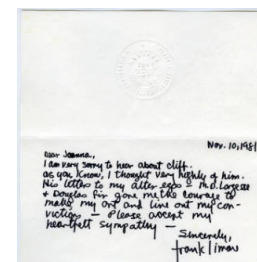 Nov. 10, 1981
Dear Joanna,
I am very sorry to hear about Cliff.
as you know, I thought very highly of him.
His letters to my alter egos — M.D.
& Douglas gave me the courage to
make my art and live out my con-
viction — Please accept my
heartfelt sympathy —
Sincerely,
frank